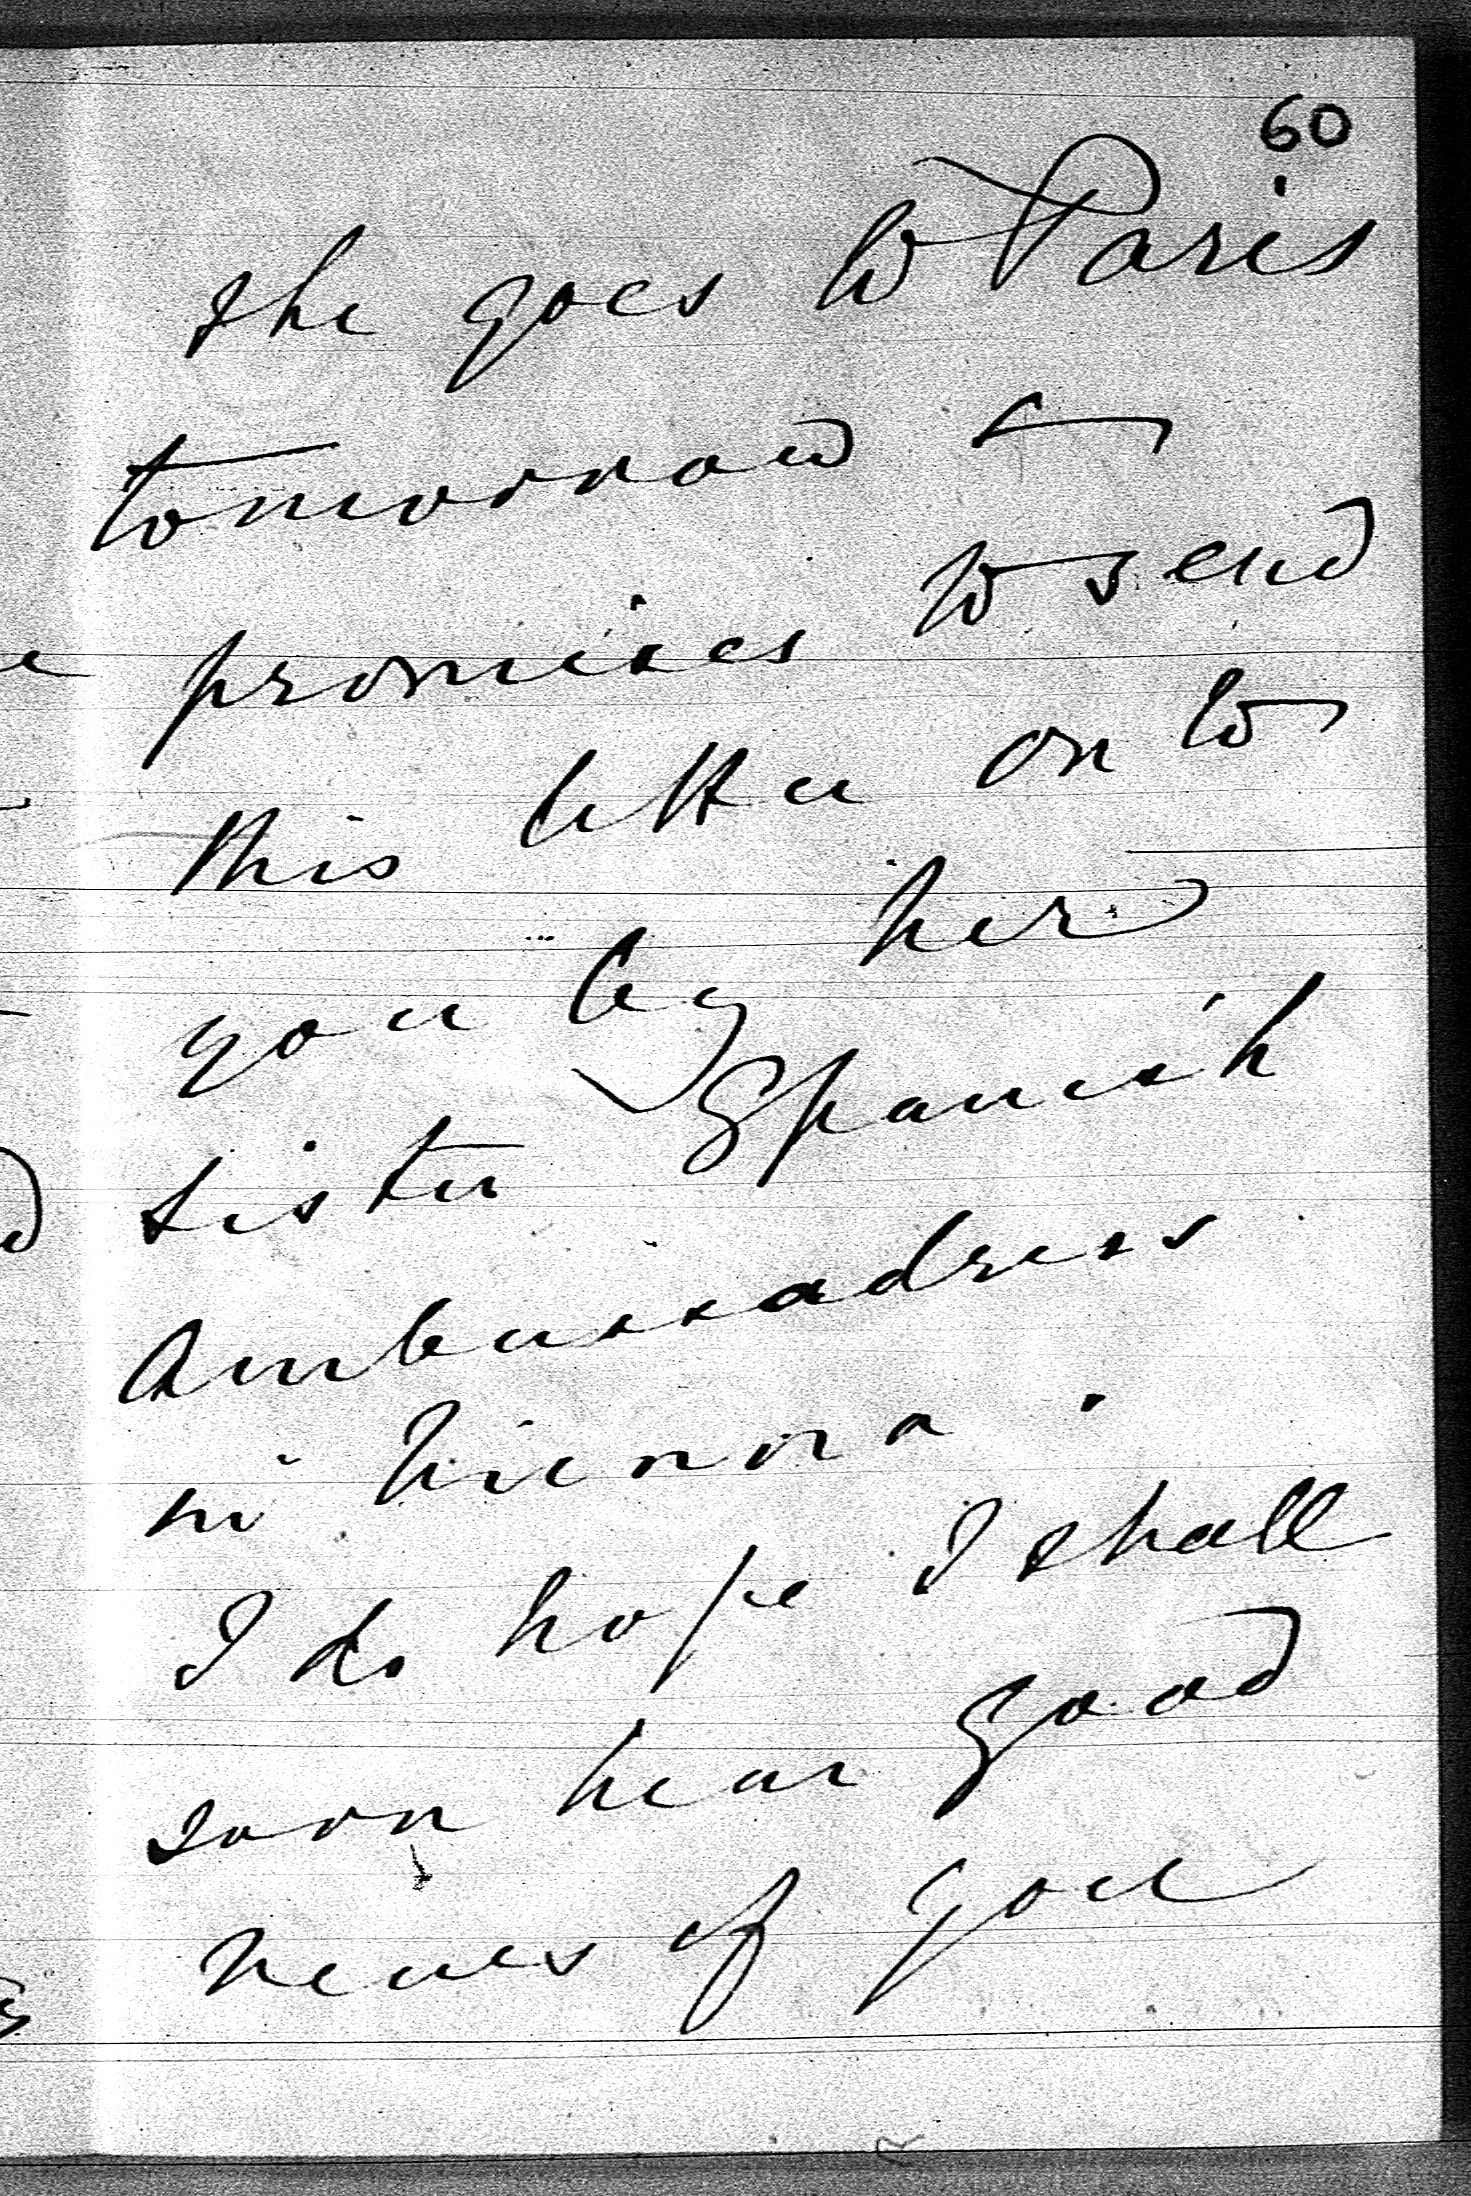 60
she goes to Paris
tomorrow &
promises to send
this letter on to
you by her
sister Spanish
Ambassadress
in Vienna.
I do hope I shall
soon hear good
news of you